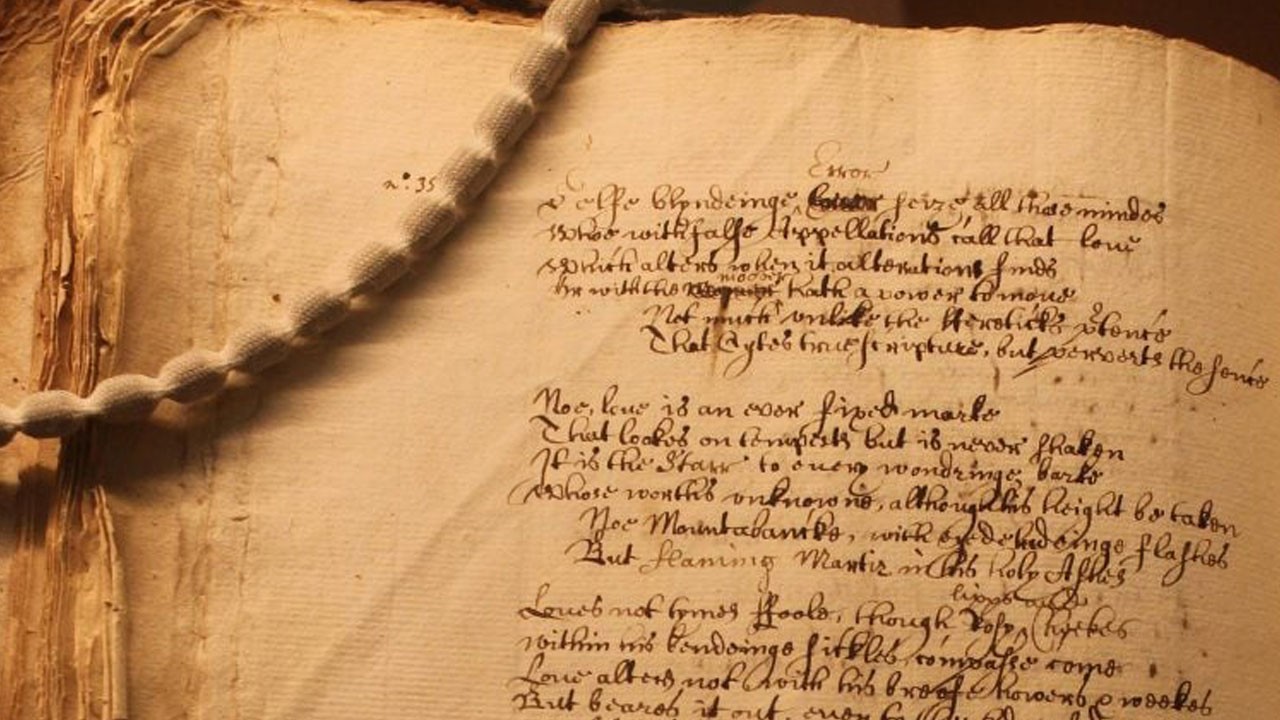 Error
nº: 35
Selfe blyndeinge seize all those mindes
Whoe with false Appellations call that loue
Which alters when it alterations finds
moover
Or with the hath a power to moue
Not much vnlike the Hereticks ptence
That Cytes true scripture, but perverts the sence
Noe, loue is an ever fixed marke
That lookes on tempests but is never shaken
It is the Starr to euery wondringe barke
Whose worth's vnknowne, although his height be taken
Noe Mountabancke, with eie deludeinge flashes
But flaming Martir in his holy Ashes
lipps and
Loues not tymes Foole, though Rosy Cheekes
within his bendeinge sickles compasse come
Loue alters not with his breefe howers & weekes
But beares it out, even to